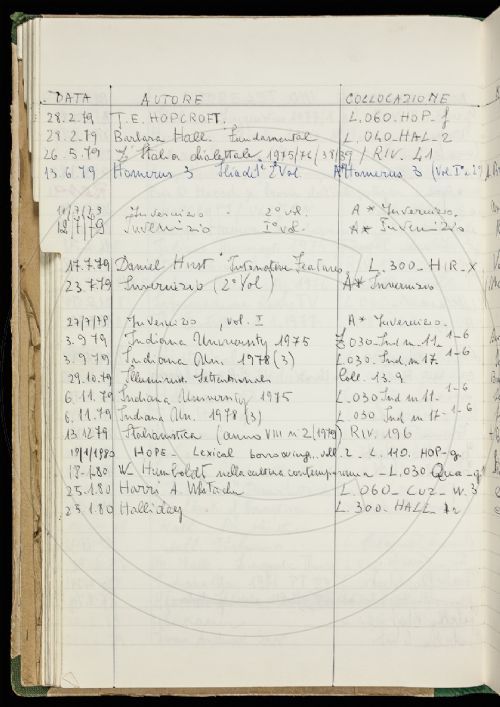 DATA AUTORE COLLOCAZIONE
28.2.79 T.E. HOPCROFT. L.060.HOP-f
28.2.79 Barbara Hall. Fundamental L.040-HAL-2
26.5.79 L'Italia dialettale, 1975/76 (38/39) / RIV. 41
13.6.79 Homerus 3 Iliad 2 Vol Homerus 3
Invernizio 2° vol. A* Invernizio.
12/7/79 Invernizio I° vol. A* Invernizio
17.7.79 Daniel Hirst Intonative Features. L.300-HIR-X
23.7.79 Invernizio (2° Vol) A* Invernizio
27/7/79 Invernizio, vol. I A* Invernizio.
3.9.79 Indiana University 1975 L 030-Ind m. 11 1-6
3.9.79 Indiana Un. 1978 (3) L 030. Ind m. 17 1-6
29.10.79 Illuminismo Settentrionale Coll. 13.9
6.11.79 Indiana University 1975 L.030 Ind m 11- 1-6
6.11.79 Indiana Un. 1978 (3) L 030 Ind m 17- 1-6
13.12.79 Italianistica (anno VIII n 2 (1979) RIV. 196
19/1/1980 HOPE - Lexical borrowing, vol. 2 - L. 110. HOP-g.
18-1-80 W. Humboldt nella cultura contemporanea - L.030 Qua-q
25.1.80 Harri A. Whitaker L.060-LUZ-W.3
25.1.80 Halliday L.300-HALL